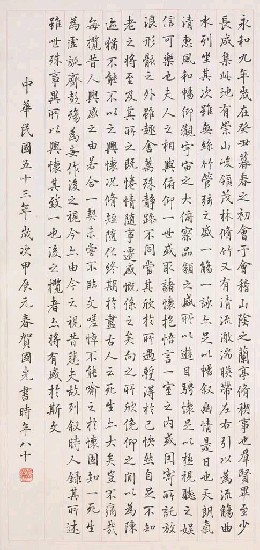 永和九年歲在癸丑暮春之初會于會稽山陰之蘭亭修稧事也群賢畢至少
長咸集此地有崇山峻領茂林修竹又有清流激湍暎帶左右引以為流觴曲
水列坐其次雖無絲竹管弦之盛一觴一詠亦足以暢敘幽情是日也天朗氣
清惠風和暢仰觀宇宙之大俯察品類之盛所以遊目騁懷足以極視聽之娛
信可樂也夫人之相與俯仰一世或取諸懷抱悟言一室之內或因寄所託放
浪形骸之外雖趣舍萬殊靜躁不同當其欣於所遇暫得於己快然自足不知
老之將至及其所之既惓情隨事遷感慨係之矣向之所欣俛仰之間以為陳
迹猶不能不以之興懷況修短隨化終期於盡古人云死生亦大矣豈不痛哉
每攬昔人興感之由若合一契未嘗不臨文嗟悼不能喻之於懷固知一死生
為虛誕齊彭殤為妄作後之視今亦由今之視昔悲夫故列敘時人錄其所述
雖世殊事異所以興懷其致一也後之攬者亦將有感於斯文
中華民國五十三年歲次甲辰元春賀國光書時年八十